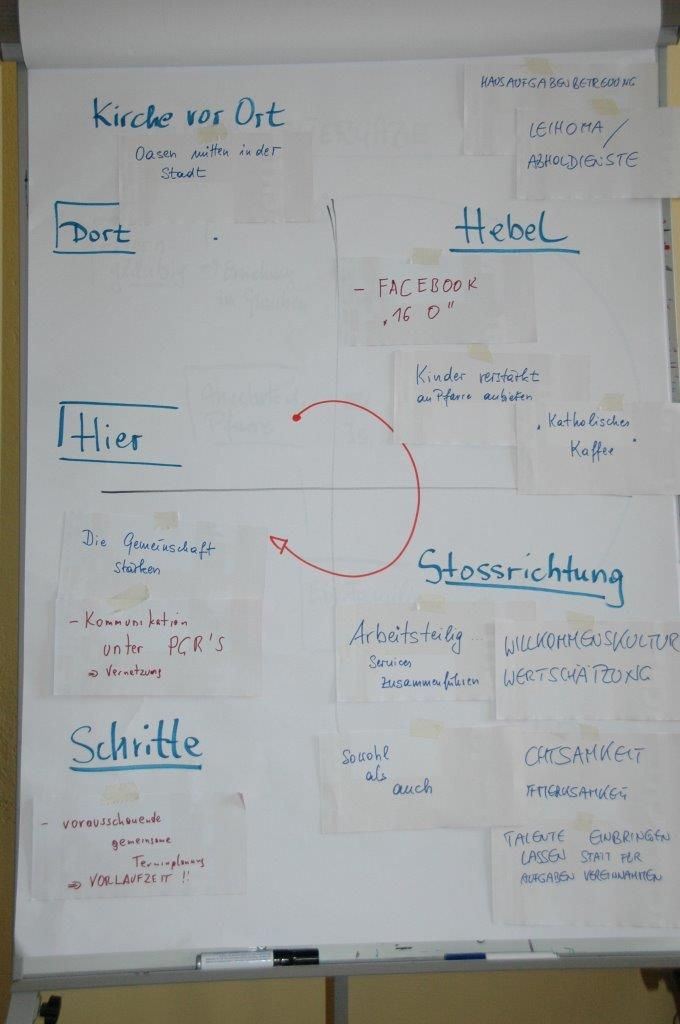 Kirche vor Ort
Oasen mitten in der
Stadt
HAUSAUFGABENBETREUUNG
LEIHOMA /
ABHOLDIENSTE
Dort
Hebel
- FACEBOOK
"16 O"
Kinder verstärkt
an Pfarre anbieten
"Katholisches
Kaffee"
Hier
Die Gemeinschaft
stärken
- Kommunikation
unter PGR'S
⇒ Vernetzung
Stossrichtung
Arbeitsteilig ...
Services
zusammenführen
WILLKOMMENSKULTUR
WERTSCHÄTZUNG
Sowohl
als
auch
CHTSAMKEIT
FMERKSAMKEIT
TALENTE EINBRINGEN
LASSEN STATT FÜR
AUFGABEN VEREINNAHMEN
Schritte
- vorausschauende
gemeinsame
Terminplanung
⇒ VORLAUFZEIT !!